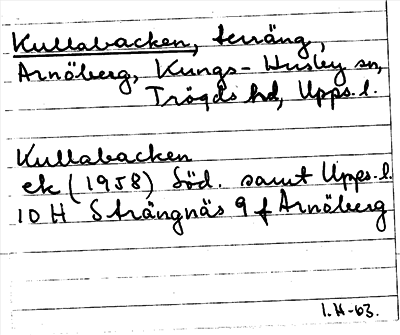 Kullabacken, terräng,
Arnöberg, Kungs-Husby sn,
Trögds hd, Upps. l.
Kullabacken
ek (1958) Söd. samt Upps. l.
10 H Strängnäs 9 f Arnöberg
1.H-63.